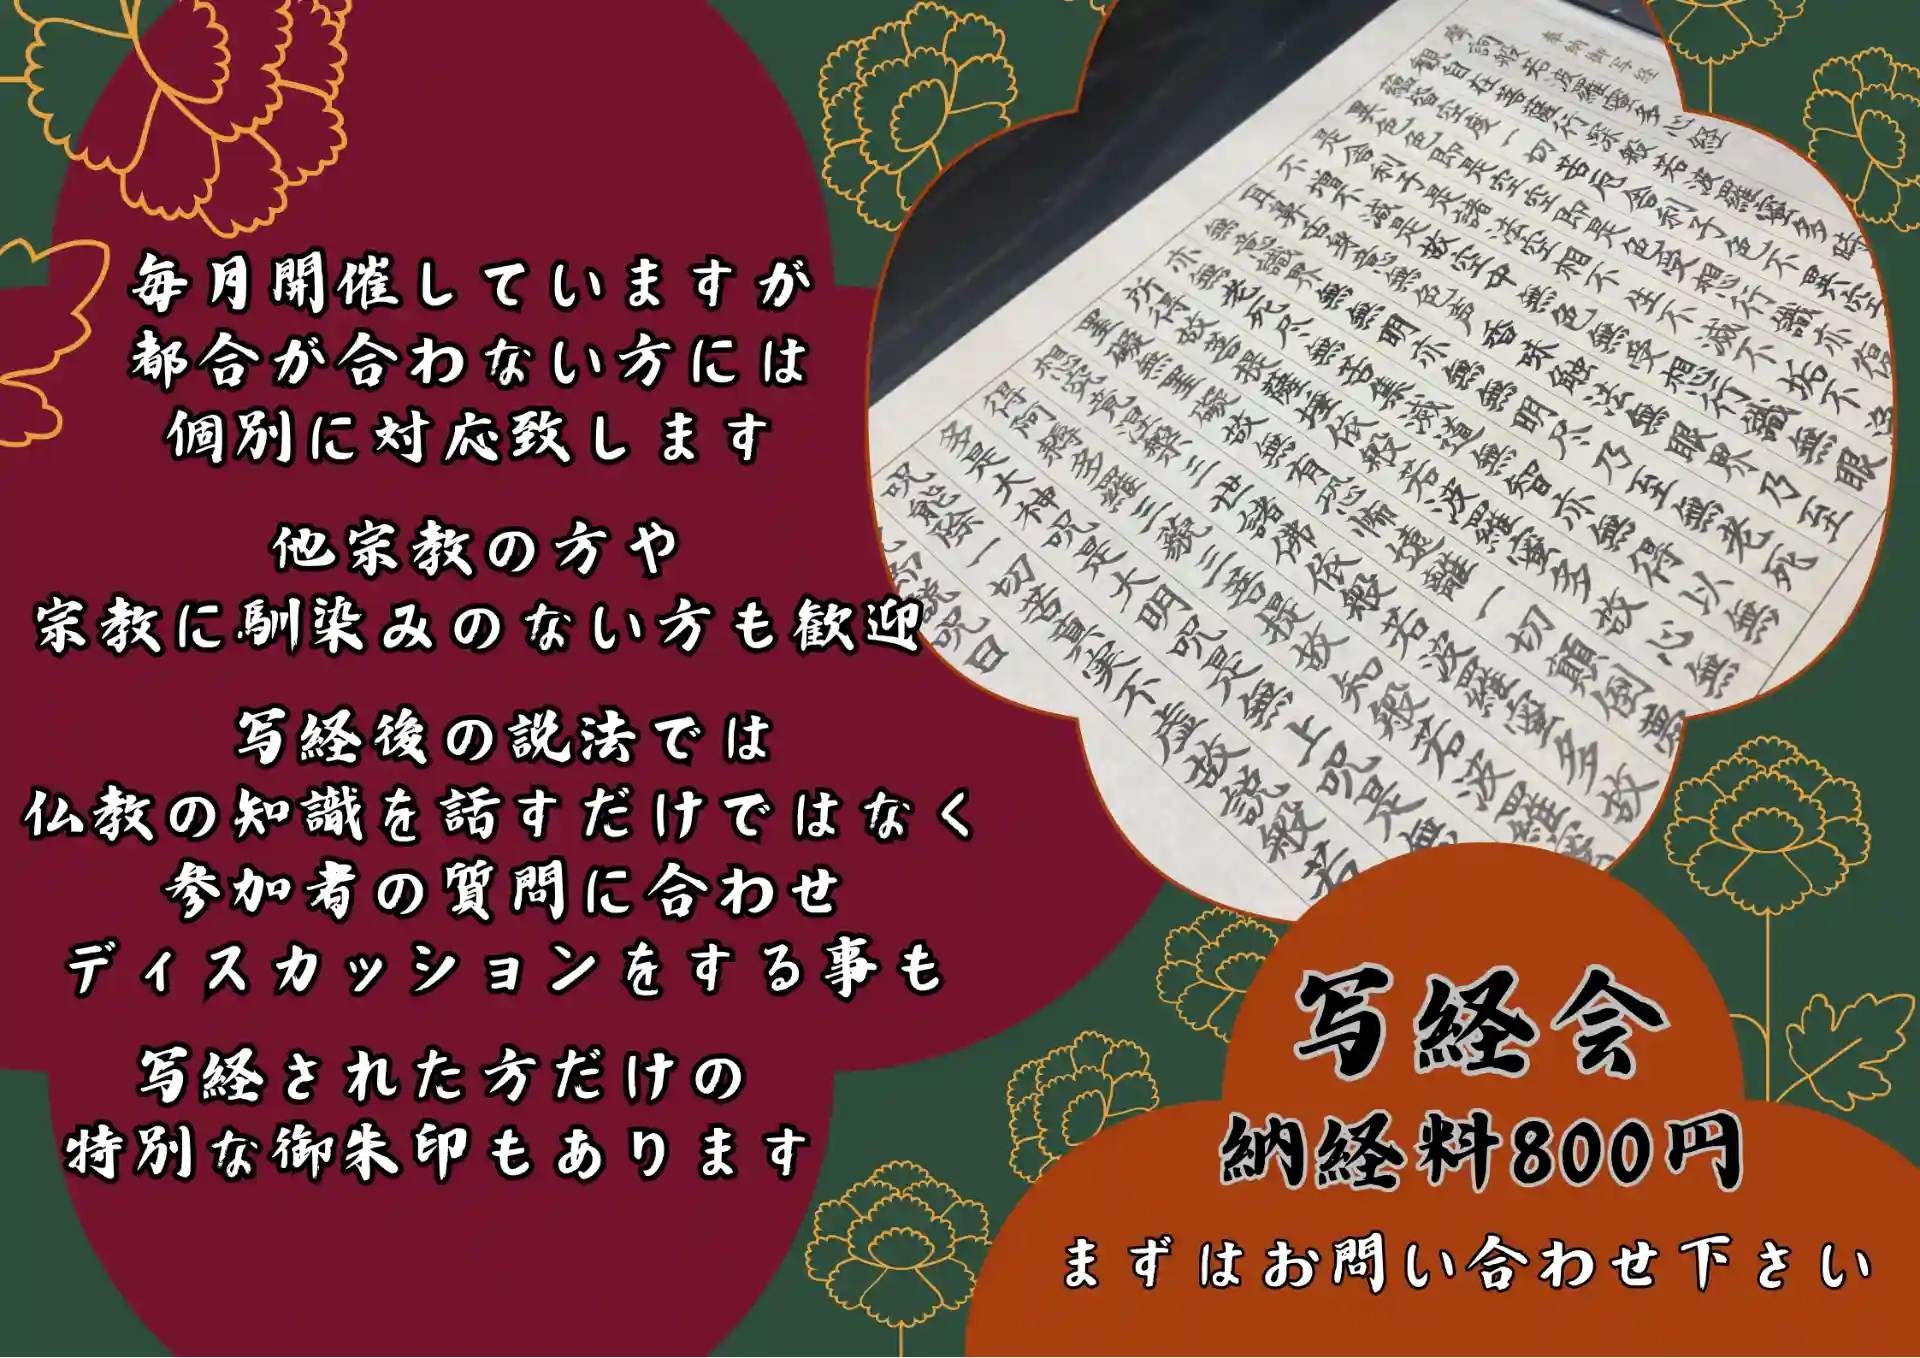 毎月開催していますが
都合が合わない方には
個別に対応致します
他宗教の方や
宗教に馴染みのない方も歓迎
写経後の説法では
仏教の知識を話すだけではなく
参加者の質問に合わせ
ディスカッションをする事も
写経された方だけの
特別な御朱印もあります
奉納御写経
摩訶般若波羅蜜多心経
観自在菩薩行深般若波羅蜜多時
蘊皆空度一切苦厄舎利子色不異空
異色色即是空空即是色受想行識亦復
是舎利子是諸法空相不生不滅不垢不
不増不減是故空中無色無受想行識無眼
耳鼻舌身意無色声香味触法無眼界乃至
無意識界無無明亦無無明尽乃至無老死
亦無老死尽無苦集滅道無智亦無得以無
所得故菩提薩埵依般若波羅蜜多故心無
罣礙無罣礙故無有恐怖遠離一切顛倒夢
想究竟涅槃三世諸佛依般若波羅蜜多故
得阿耨多羅三藐三菩提故知般若波羅蜜
多是大神呪是大明呪是無上呪是無
呪能除一切苦真実不虚故説般若
説呪曰
写経会
納経料800円
まずはお問い合わせ下さい